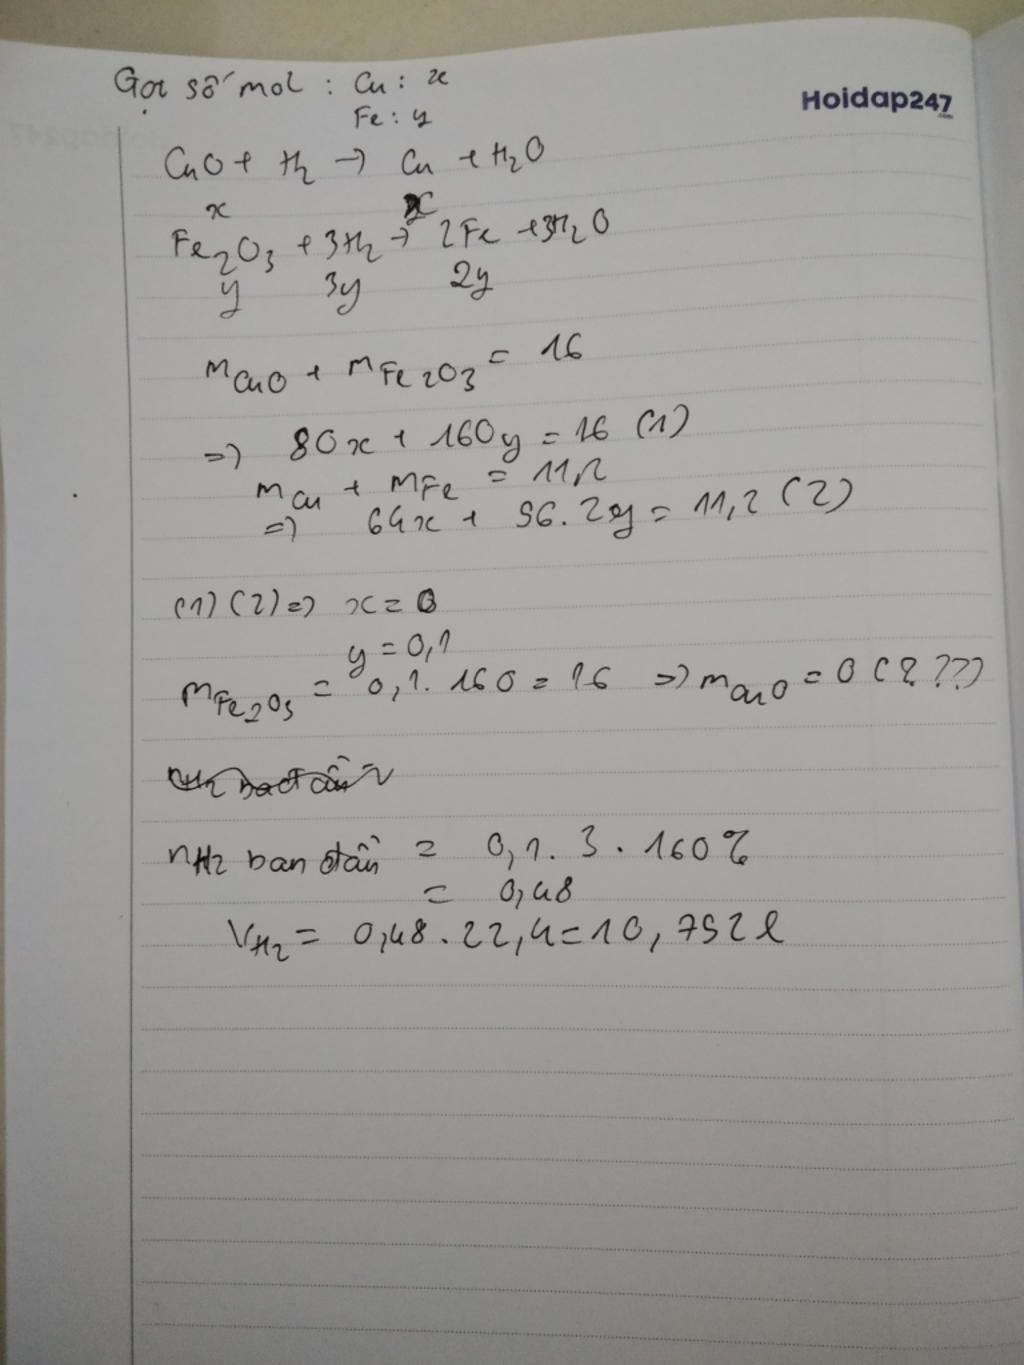 Gọi số mol : Cu : x
Hoidap247
.com
Fe : y
CuO + H2 → Cu + H2O
x x
Fe2O3 + 3H2 → 2Fe + 3H2O
y 3y 2y
mCuO + mFe2O3 = 16
=> 80x + 160y = 16 (1)
mCu + mFe = 11,2
=> 64x + 56.2y = 11,2 (2)
(1) (2) => x = 0
y = 0,1
mFe2O3 = 0,1. 160 = 16 => mCuO = 0 (???)
nH2 ban đầu =
nH2 ban đầu = 0,1. 3. 160%
= 0,48
VH2 = 0,48.22,4 = 10,752 l